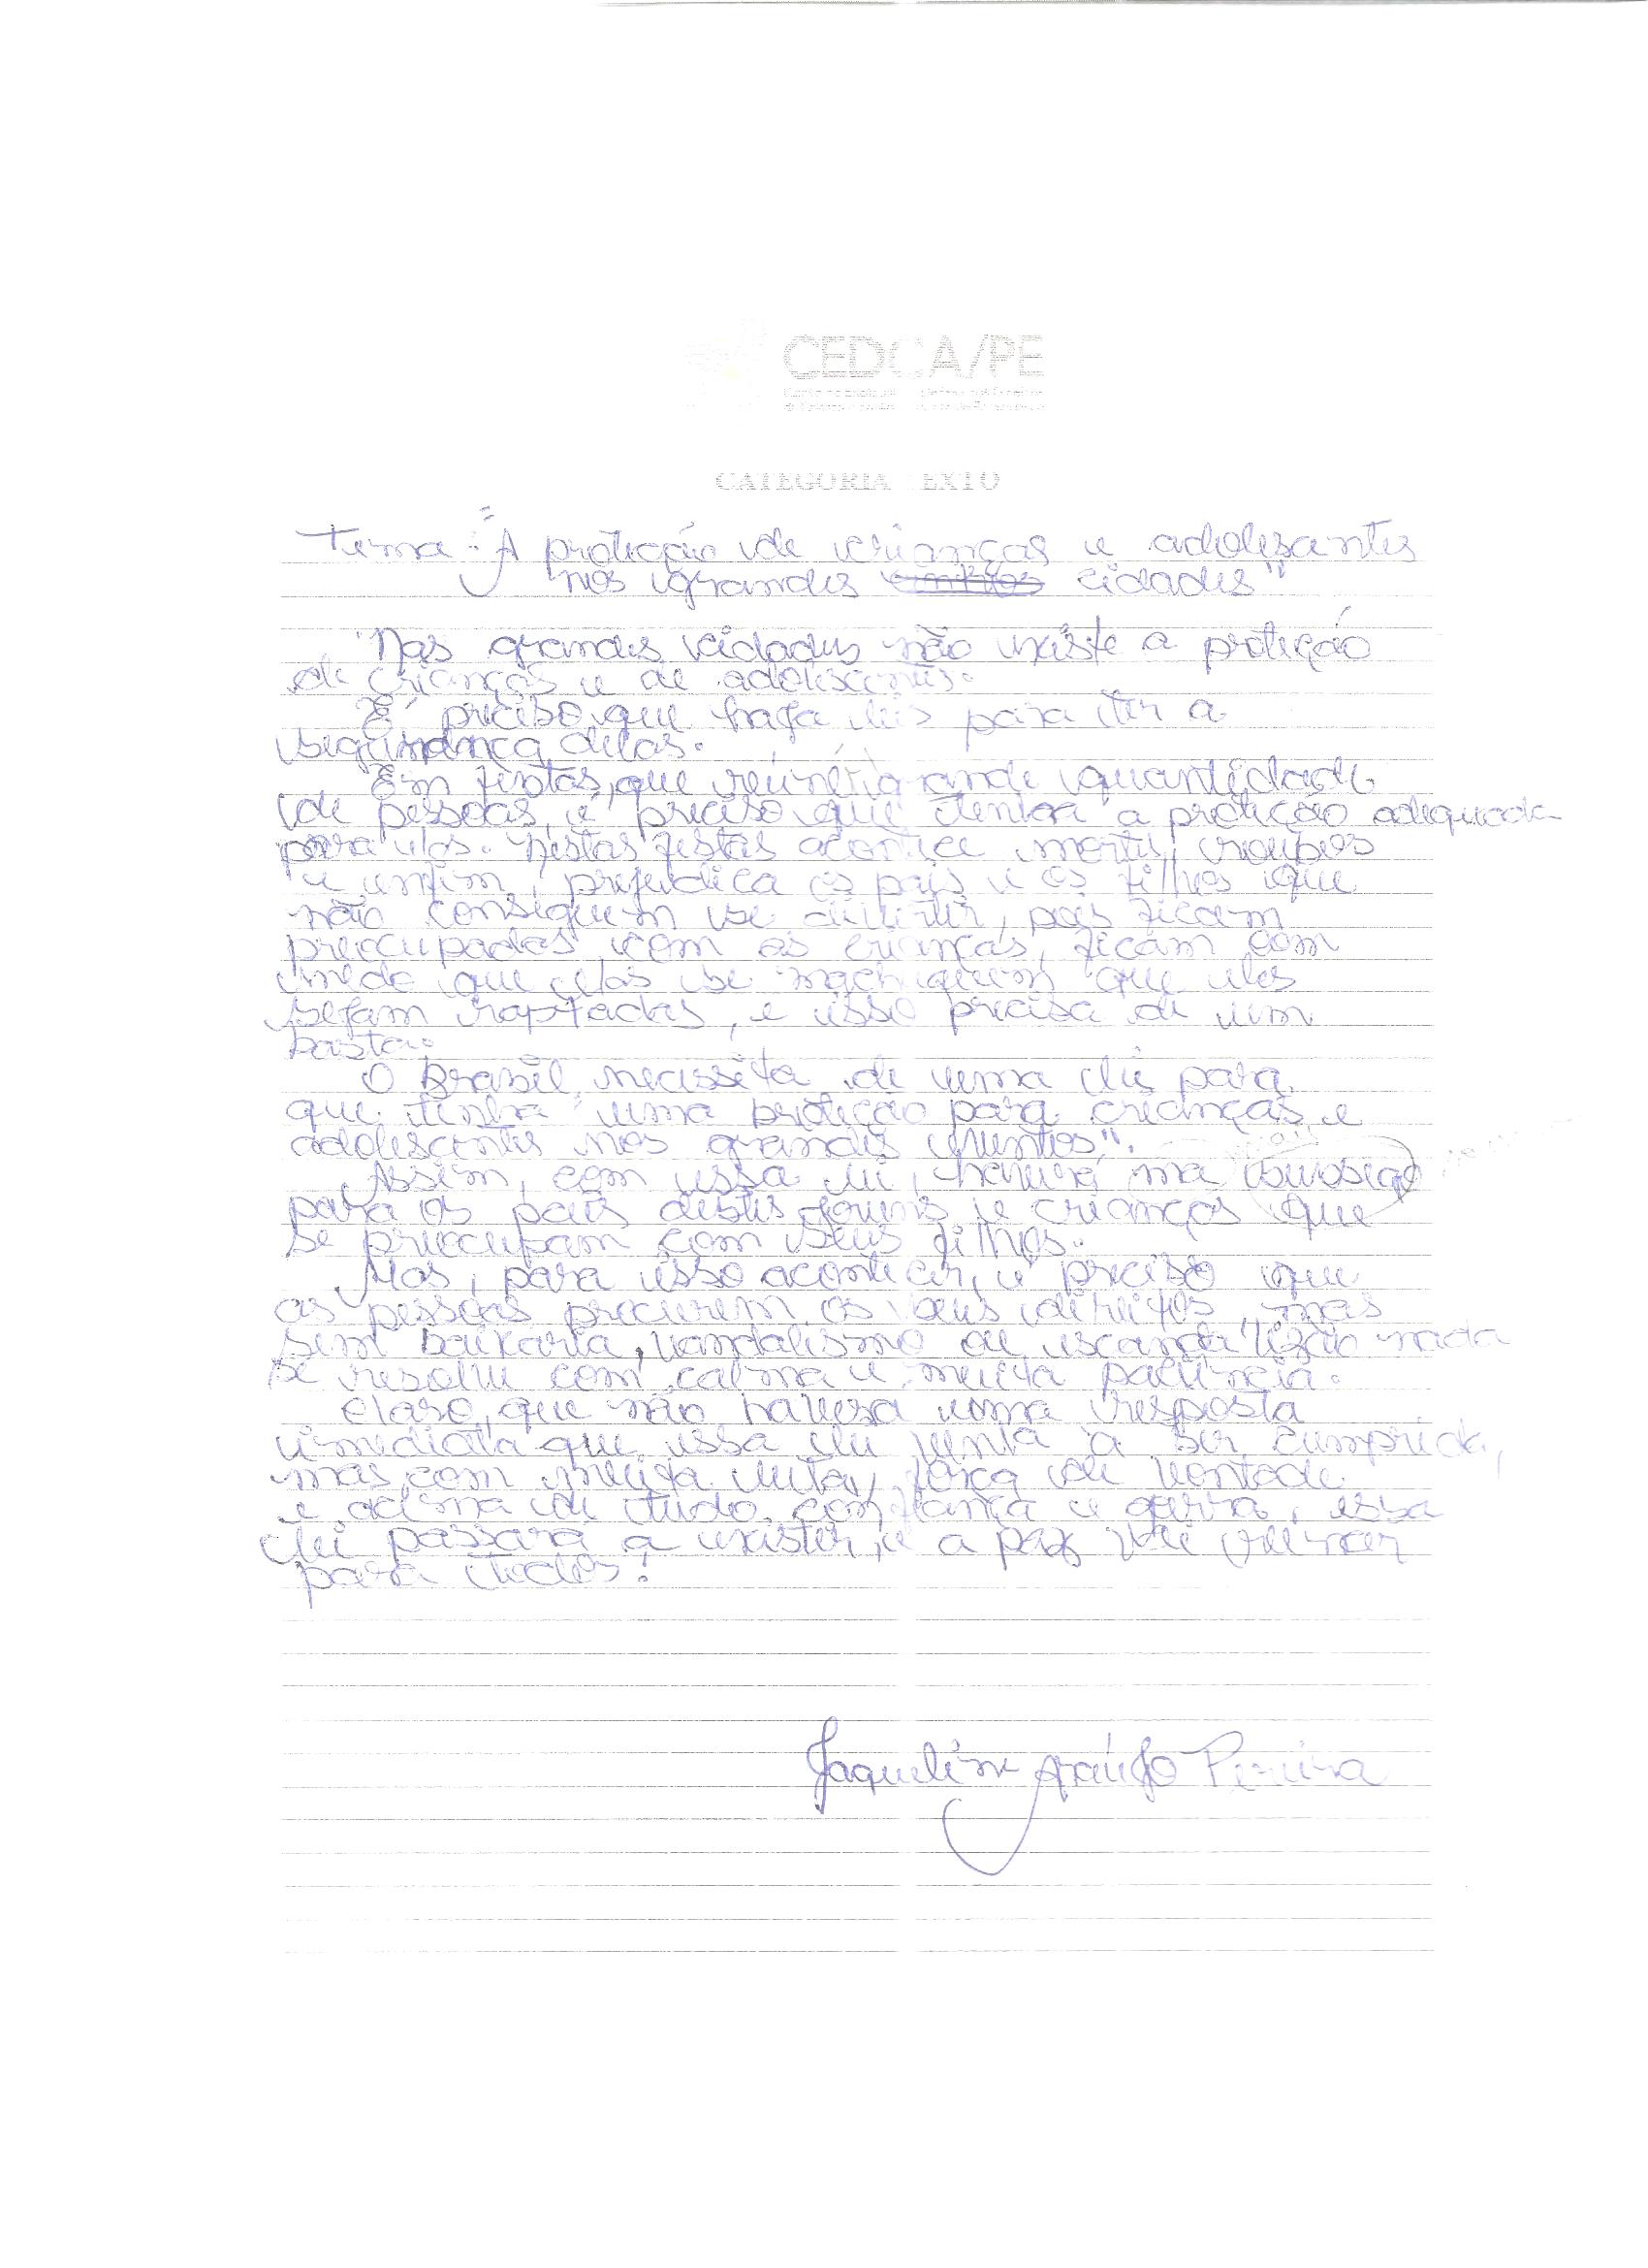 CEDCA/PE
CATEGORIA TEXTO
Tema: "A proteção de crianças e adolesantes
nos grandes cidades"
"Nas grandes cidades não existe a proteção
de crianças e de adolescentes.
É preciso que haja leis para ter a
segurança delas.
Em festas, que reúne grande quantidade
de pessoas, é preciso que tenha a proteção adequada
para elas. Nestas festas acontece mortes, roubos
e enfim, prejudica os pais e os filhos que
não conseguem se divertir, pois ficam
preocupados com as crianças, ficam com
medo que elas se machuquem que eles
sejam raptadas, e isso precisa de um
basta.
O Brasil necessita de uma lei para
que tenha uma proteção para crianças e
adolescentes nos grandes eventos".
Assim, com essa lei, haverá
para os pais destes jovens e crianças que
se preocupam com seus filhos.
Mas, para isso acontecer, é preciso que
as pessoas procurem os seus direitos, mas
sem baixaria, vandalismo ou nada
se resolve com calma e muita paciência.
Claro, que não havera uma resposta
imediata que essa lei venha a ser cumprida,
mas, com muita luta, força de vontade
e acima de tudo, confiança e garra, essa
lei passará a existir, e a paz vai reinar
para todos!
Jaqueline Araújo Pereira